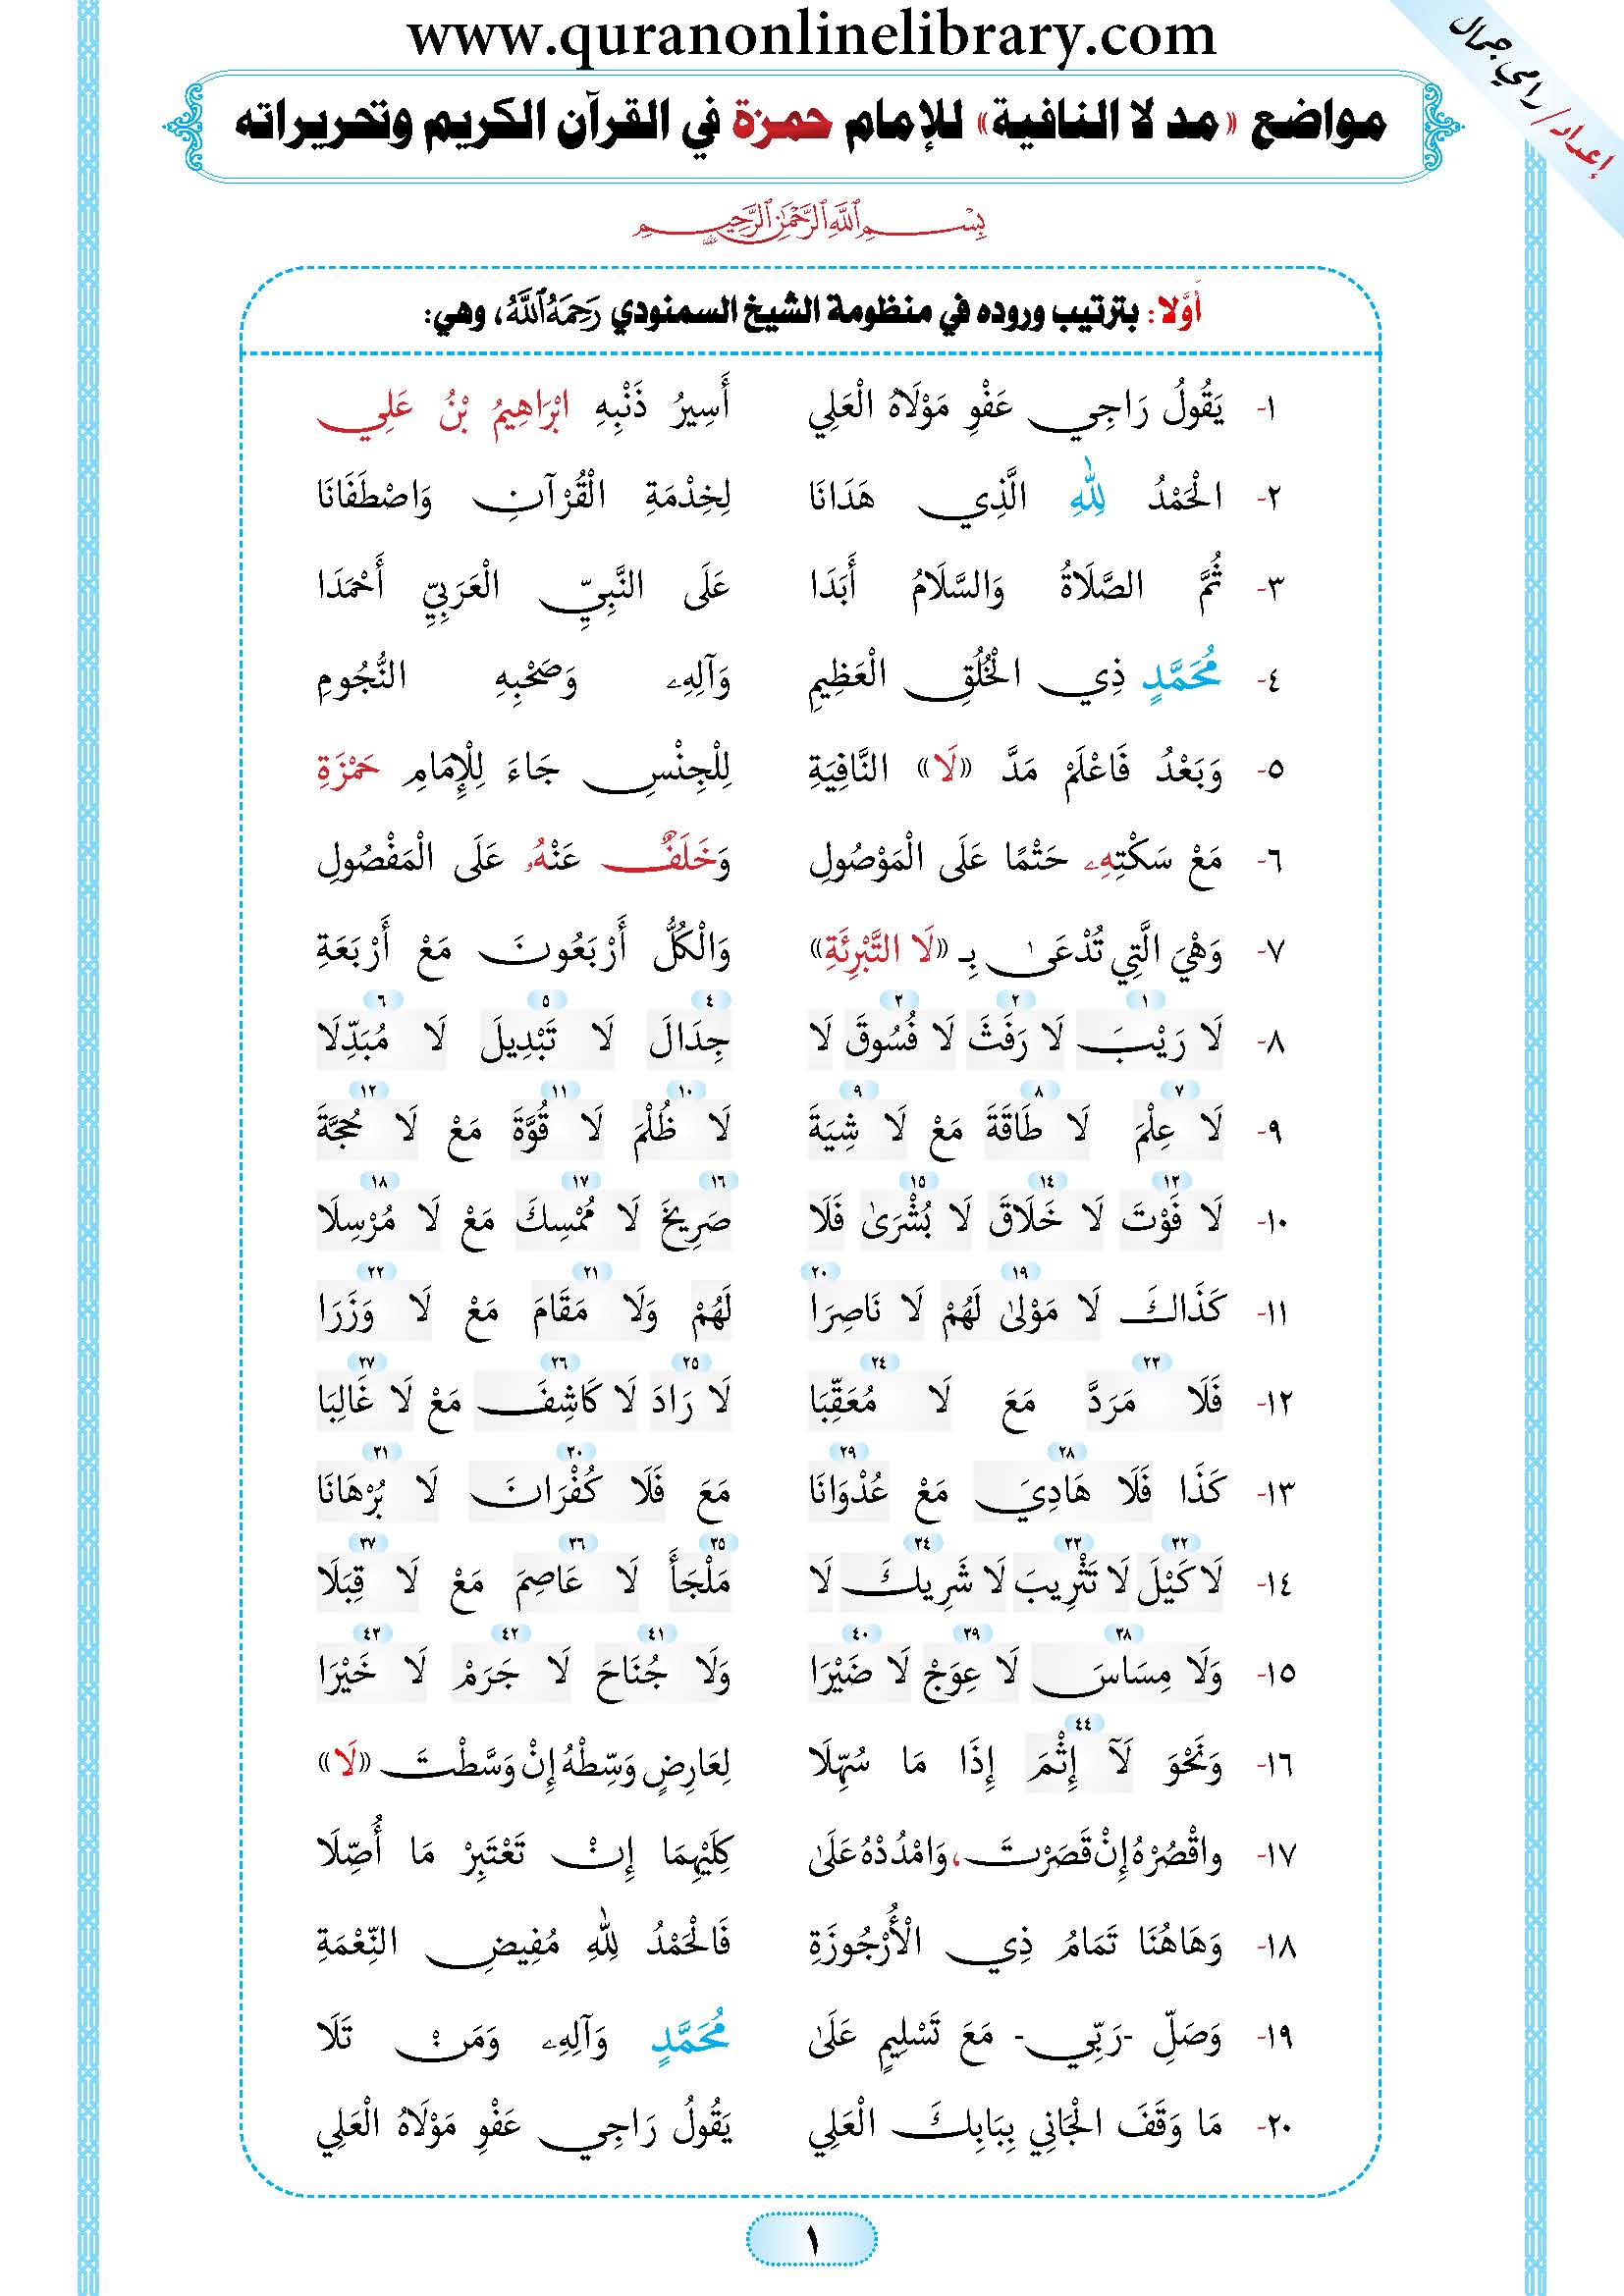 www.quranonlinelibrary.com
إعداد/ رامي جمال
مواضع «مد لا النافية» للإمام حمزة في القرآن الكريم وتحريراته
بِسْمِ ٱللَّهِ ٱلرَّحْمَٰنِ ٱلرَّحِيمِ
أَوَّلا: بترتيب وروده في منظومة الشيخ السمنودي رَحِمَهُ ٱللَّهُ، وهي:
١- يَقُولُ رَاجِي عَفْوِ مَوْلَاهُ الْعَلِي أَسِيرُ ذَنْبِهِ ابْرَاهِيمُ بْنُ عَلِي
٢- الْحَمْدُ لِلَّهِ الَّذِي هَدَانَا لِخِدْمَةِ الْقُرْآنِ وَاصْطَفَانَا
٣- ثُمَّ الصَّلَاةُ وَالسَّلَامُ أَبَدَا عَلَى النَّبِيِّ الْعَرَبِيِّ أَحْمَدَا
٤- مُحَمَّدٍ ذِي الْخُلُقِ الْعَظِيمِ وَآلِهِۦ وَصَحْبِهِ النُّجُومِ
٥- وَبَعْدُ فَاعْلَمْ مَدَّ «لَا» النَّافِيَةِ لِلْجِنْسِ جَاءَ لِلْإِمَامِ حَمْزَةِ
٦- مَعْ سَكْتِهِۦ حَتْمًا عَلَى الْمَوْصُولِ وَخَلَفٌ عَنْهُۥ عَلَى الْمَفْصُولِ
٧- وَهْيَ الَّتِي تُدْعَىٰ بِـ «لَا التَّبْرِئَةِ» وَالْكُلُّ أَرْبَعُونَ مَعْ أَرْبَعَةِ
١ ٢ ٣ ٤ ٥ ٦
٨- لَا رَيْبَ لَا رَفَثَ لَا فُسُوقَ لَا جِدَالَ لَا تَبْدِيلَ لَا مُبَدِّلَا
٧ ٨ ٩ ١٠ ١١ ١٢
٩- لَا عِلْمَ لَا طَاقَةَ مَعْ لَا شِيَةَ لَا ظُلْمَ لَا قُوَّةَ مَعْ لَا حُجَّةَ
١٣ ١٤ ١٥ ١٦ ١٧ ١٨
١٠- لَا فَوْتَ لَا خَلَاقَ لَا بُشْرَىٰ فَلَا صَرِيخَ لَا مُمْسِكَ مَعْ لَا مُرْسِلَا
١٩ ٢٠ ٢١ ٢٢
١١- كَذَاكَ لَا مَوْلَىٰ لَهُمْ لَا نَاصِرَا لَهُمْ وَلَا مَقَامَ مَعْ لَا وَزَرَا
٢٣ ٢٤ ٢٥ ٢٦ ٢٧
١٢- فَلَا مَرَدَّ مَعَ لَا مُعَقِّبَا لَا رَادَ لَا كَاشِفَ مَعْ لَا غَالِبَا
٢٨ ٢٩ ٣٠ ٣١
١٣- كَذَا فَلَا هَادِيَ مَعْ عُدْوَانَا مَعَ فَلَا كُفْرَانَ لَا بُرْهَانَا
٣٢ ٣٣ ٣٤ ٣٥ ٣٦ ٣٧
١٤- لَا كَيْلَ لَا تَثْرِيبَ لَا شَرِيكَ لَا مَلْجَأَ لَا عَاصِمَ مَعْ لَا قِبَلَا
٣٨ ٣٩ ٤٠ ٤١ ٤٢ ٤٣
١٥- وَلَا مِسَاسَ لَا عِوَجْ لَا ضَيْرَا وَلَا جُنَاحَ لَا جَرَمْ لَا خَيْرَا
٤٤
١٦- وَنَحْوَ لَآ إِثْمَ إِذَا مَا سُهِّلَا لِعَارِضٍ وَسِّطْهُ إِنْ وَسَّطْتَ «لَا»
١٧- واقْصُرْهُ إِنْ قَصَرْتَ، وَامْدُدْهُ عَلَىٰ كِلَيْهِمَا إِنْ تَعْتَبِرْ مَا أُصِّلَا
١٨- وَهَاهُنَا تَمَامُ ذِي الْأُرْجُوزَةِ فَالْحَمْدُ لِلَّهِ مُفِيضِ النِّعْمَةِ
١٩- وَصَلِّ -رَبِّي- مَعَ تَسْلِيمٍ عَلَىٰ مُحَمَّدٍ وَآلِهِۦ وَمَنْ تَلَا
٢٠- مَا وَقَفَ الْجَانِي بِبَابِكَ الْعَلِي يَقُولُ رَاجِي عَفْوِ مَوْلَاهُ الْعَلِي
١